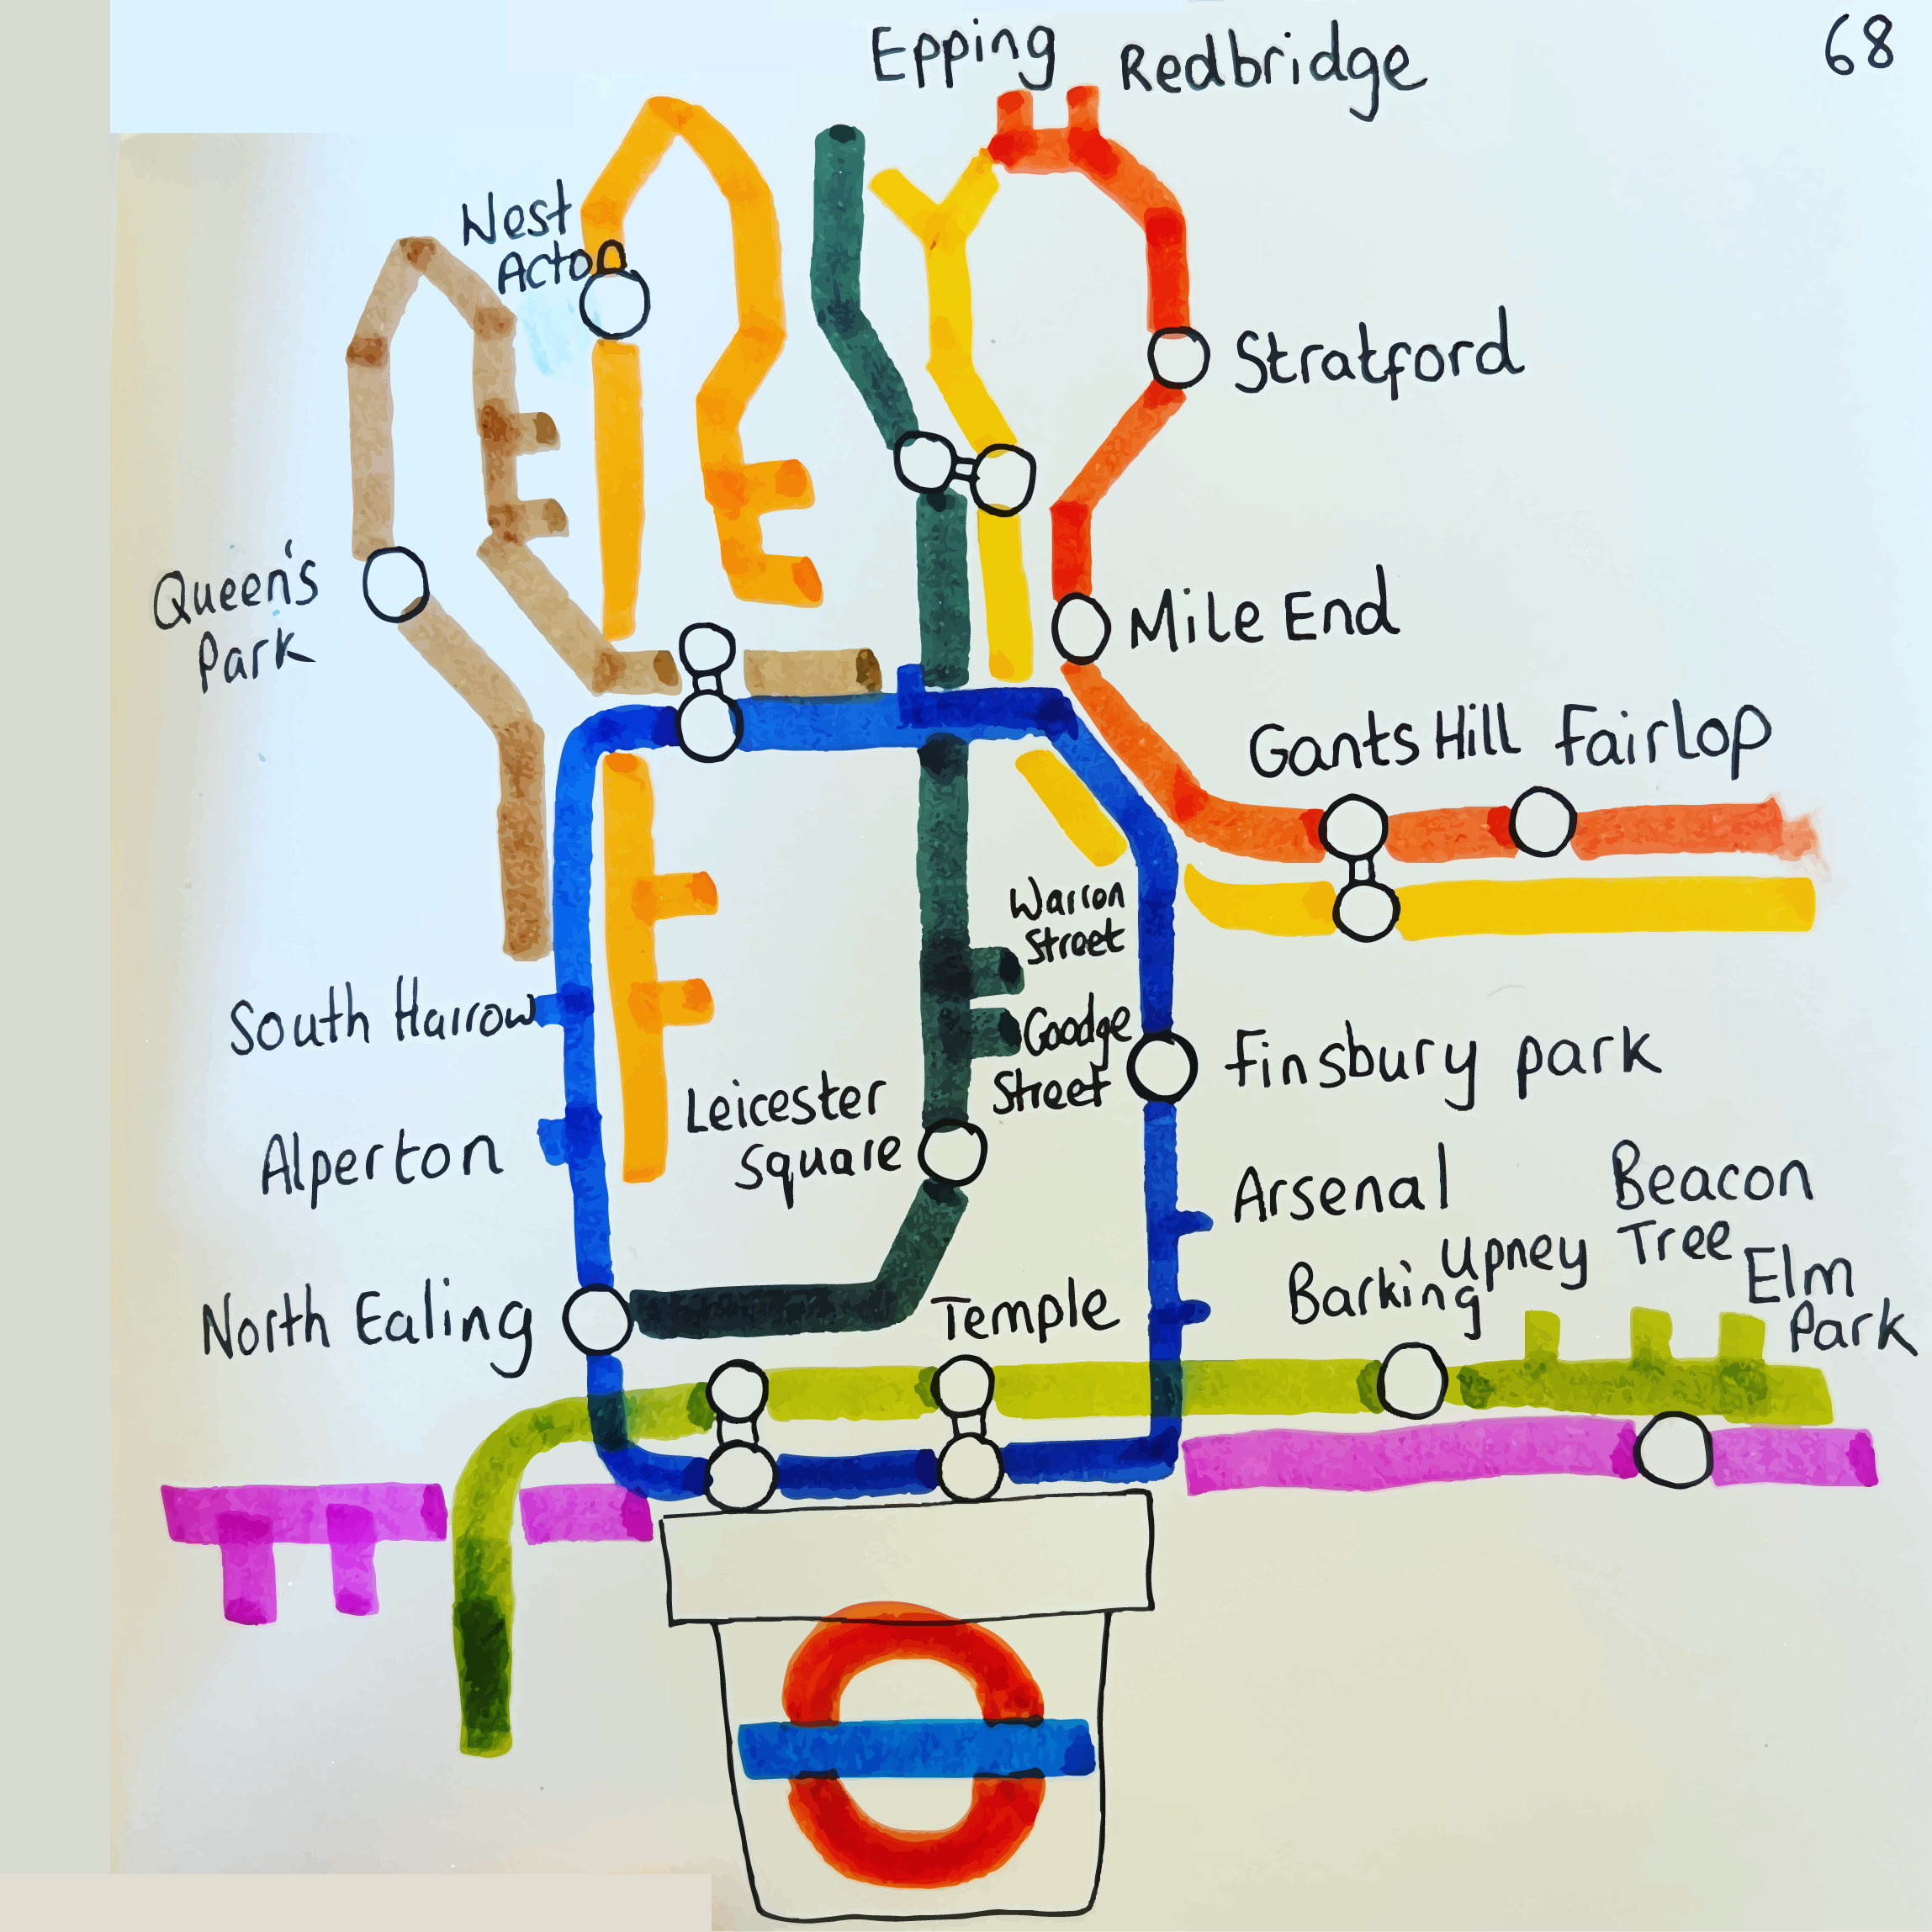 68
Epping Redbridge
West
Acton
Stratford
Queen's
Park
Mile End
Gants Hill Fairlop
Warron
Street
South Harrow
Goodge
Street
Finsbury park
Leicester
Square
Alperton
Arsenal
Beacon
Tree
Upney
Barking
Elm
Park
North Ealing
Temple